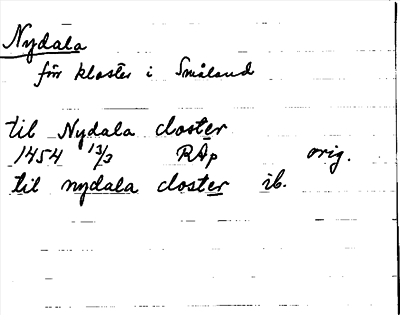 Nydala
för kloster i Småland
til Nydala closter
1454 13/3 RAp orig.
til nydala closter ib.